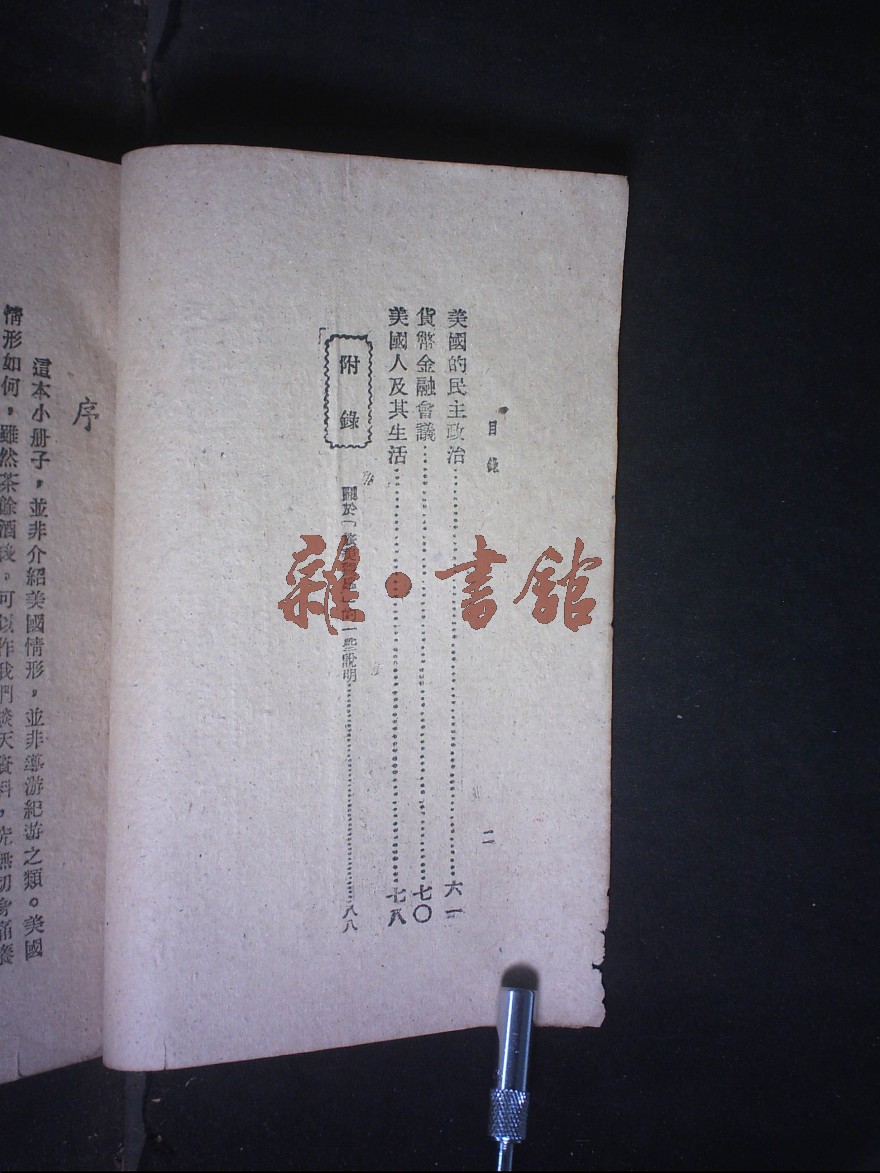 目錄
二
美國的民主政治……六一
貨幣金融會議……七〇
美國人及其生活……七八
附錄
關於「 的一些說明……八八
序
這本小册子，並非介紹美國情形，並非導游紀游之類。美國
情形如何，雖然茶餘酒後，可以作我們談天資料，究無切身痛癢
雜·書館